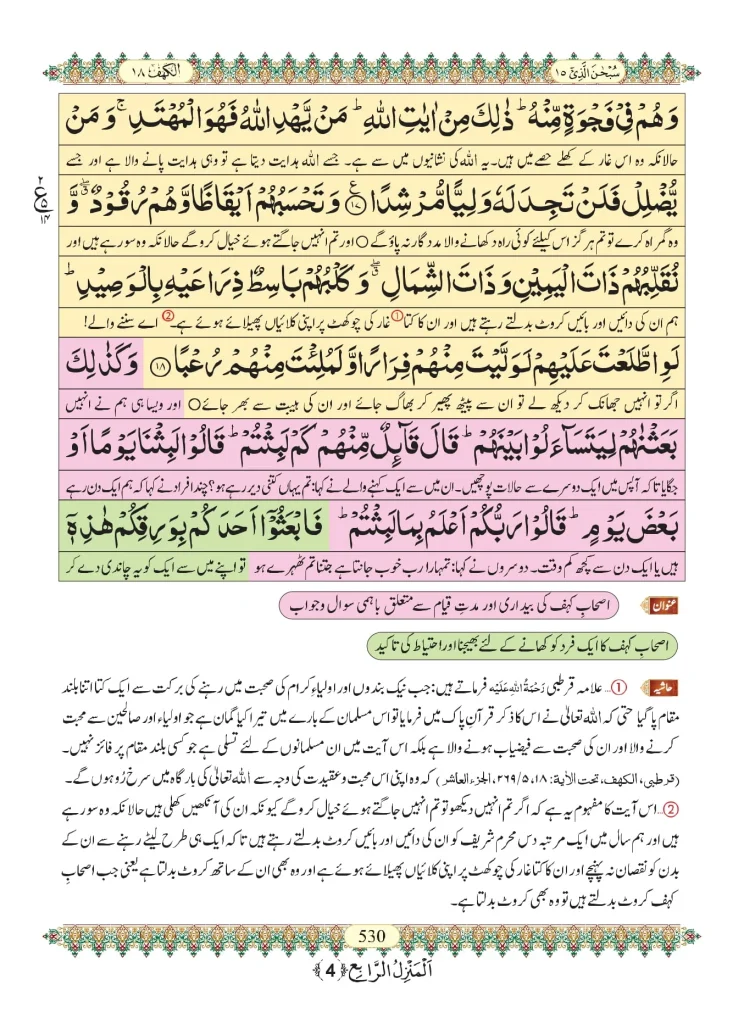 سُبْحٰنَ الَّذِیْۤ ١٥
اَلْكَهْف ١٨
وَهُمْ فِیْ فَجْوَةٍ مِّنْهُ ؕ ذٰلِكَ مِنْ اٰیٰتِ اللّٰهِ ؕ مَنْ یَّهْدِ اللّٰهُ فَهُوَ الْمُهْتَدِ ۚ وَ مَنْ
حالانکہ وہ اس غار کے کھلے حصے میں ہیں۔ یہ اللہ کی نشانیوں میں سے ہے۔ جسے اللہ ہدایت دیتا ہے تو وہی ہدایت پانے والا ہے اور جسے
یُّضْلِلْ فَلَنْ تَجِدَ لَهٗ وَلِیًّا مُّرْشِدًا ۠﴿۱۷﴾ وَ تَحْسَبُهُمْ اَیْقَاظًا وَّ هُمْ رُقُوْدٌ ۖۗ وَّ
وہ گمراہ کرے تو تم ہرگز اس کیلئے کوئی راہ دکھانے والا مددگار نہ پاؤ گے ○ اور تم انہیں جاگتے ہوئے خیال کرو گے حالانکہ وہ سو رہے ہیں اور
نُقَلِّبُهُمْ ذَاتَ الْیَمِیْنِ وَ ذَاتَ الشِّمَالِ ۖۗ وَ كَلْبُهُمْ بَاسِطٌ ذِرَاعَیْهِ بِالْوَصِیْدِ ؕ
ہم ان کی دائیں اور بائیں کروٹ بدلتے رہتے ہیں اور ان کا کتا ① غار کی چوکھٹ پر اپنی کلائیاں پھیلائے ہوئے ہے۔ ② اے سننے والے!
لَوِ اطَّلَعْتَ عَلَیْهِمْ لَوَلَّیْتَ مِنْهُمْ فِرَارًا وَّ لَمُلِئْتَ مِنْهُمْ رُعْبًا ﴿۱۸﴾ وَ كَذٰلِكَ
اگر تو انہیں جھانک کر دیکھ لے تو ان سے پیٹھ پھیر کر بھاگ جائے اور ان کی ہیبت سے بھر جائے ○ اور ویسا ہی ہم نے انہیں
بَعَثْنٰهُمْ لِیَتَسَآءَلُوْا بَیْنَهُمْ ؕ قَالَ قَآىٕلٌ مِّنْهُمْ كَمْ لَبِثْتُمْ ؕ قَالُوْا لَبِثْنَا یَوْمًا اَوْ
جگایا تاکہ آپس میں ایک دوسرے سے حالات پوچھیں۔ ان میں سے ایک کہنے والے نے کہا: تم یہاں کتنی دیر رہے ہو؟ چند افراد نے کہا کہ ہم ایک دن رہے
بَعْضَ یَوْمٍ ؕ قَالُوْا رَبُّكُمْ اَعْلَمُ بِمَا لَبِثْتُمْ ؕ فَابْعَثُوْۤا اَحَدَكُمْ بِوَرِقِكُمْ هٰذِهٖۤ
ہیں یا ایک دن سے کچھ کم وقت۔ دوسروں نے کہا: تمہارا رب خوب جانتا ہے جتنا تم ٹھہرے ہو تو اپنے میں سے ایک کو یہ چاندی دے کر
عنوان اصحابِ کہف کی بیداری اور مدتِ قیام سے متعلق باہمی سوال و جواب
اصحابِ کہف کا ایک فرد کو کھانے کے لئے بھیجنا اور احتیاط کی تاکید
حاشیہ ①... علامہ قرطبی رَحْمَةُ اللهِ عَلَيْه فرماتے ہیں: جب نیک بندوں اور اولیاءِ کرام کی صحبت میں رہنے کی برکت سے ایک کتا اتنا بلند
مقام پا گیا حتی کہ اللہ تعالیٰ نے اس کا ذکر قرآنِ پاک میں فرمایا تو اس مسلمان کے بارے میں تیرا کیا گمان ہے جو اولیاء اور صالحین سے محبت
کرنے والا اور ان کی صحبت سے فیضیاب ہونے والا ہے بلکہ اس آیت میں ان مسلمانوں کے لئے تسلی ہے جو کسی بلند مقام پر فائز نہیں۔
(قرطبی، الکہف، تحت الآیۃ: ۱۸، ۵/۲۶۹، الجزء العاشر) کہ وہ اپنی اس محبت و عقیدت کی وجہ سے اللہ تعالیٰ کی بارگاہ میں سرخ رُو ہوں گے۔
②... اس آیت کا مفہوم یہ ہے کہ اگر تم انہیں دیکھو تو تم انہیں جاگتے ہوئے خیال کرو گے کیونکہ ان کی آنکھیں کھلی ہیں حالانکہ وہ سو رہے
ہیں اور ہم سال میں ایک مرتبہ دس محرم شریف کو ان کی دائیں اور بائیں کروٹ بدلتے رہتے ہیں تاکہ ایک ہی طرح لیٹے رہنے سے ان کے
بدن کو نقصان نہ پہنچے اور ان کا کتا غار کی چوکھٹ پر اپنی کلائیاں پھیلائے ہوئے ہے اور وہ بھی ان کے ساتھ کروٹ بدلتا ہے یعنی جب اصحابِ
کہف کروٹ بدلتے ہیں تو وہ بھی کروٹ بدلتا ہے۔
530
اَلْمَنْزِلُ الرَّابِع ﴿4﴾